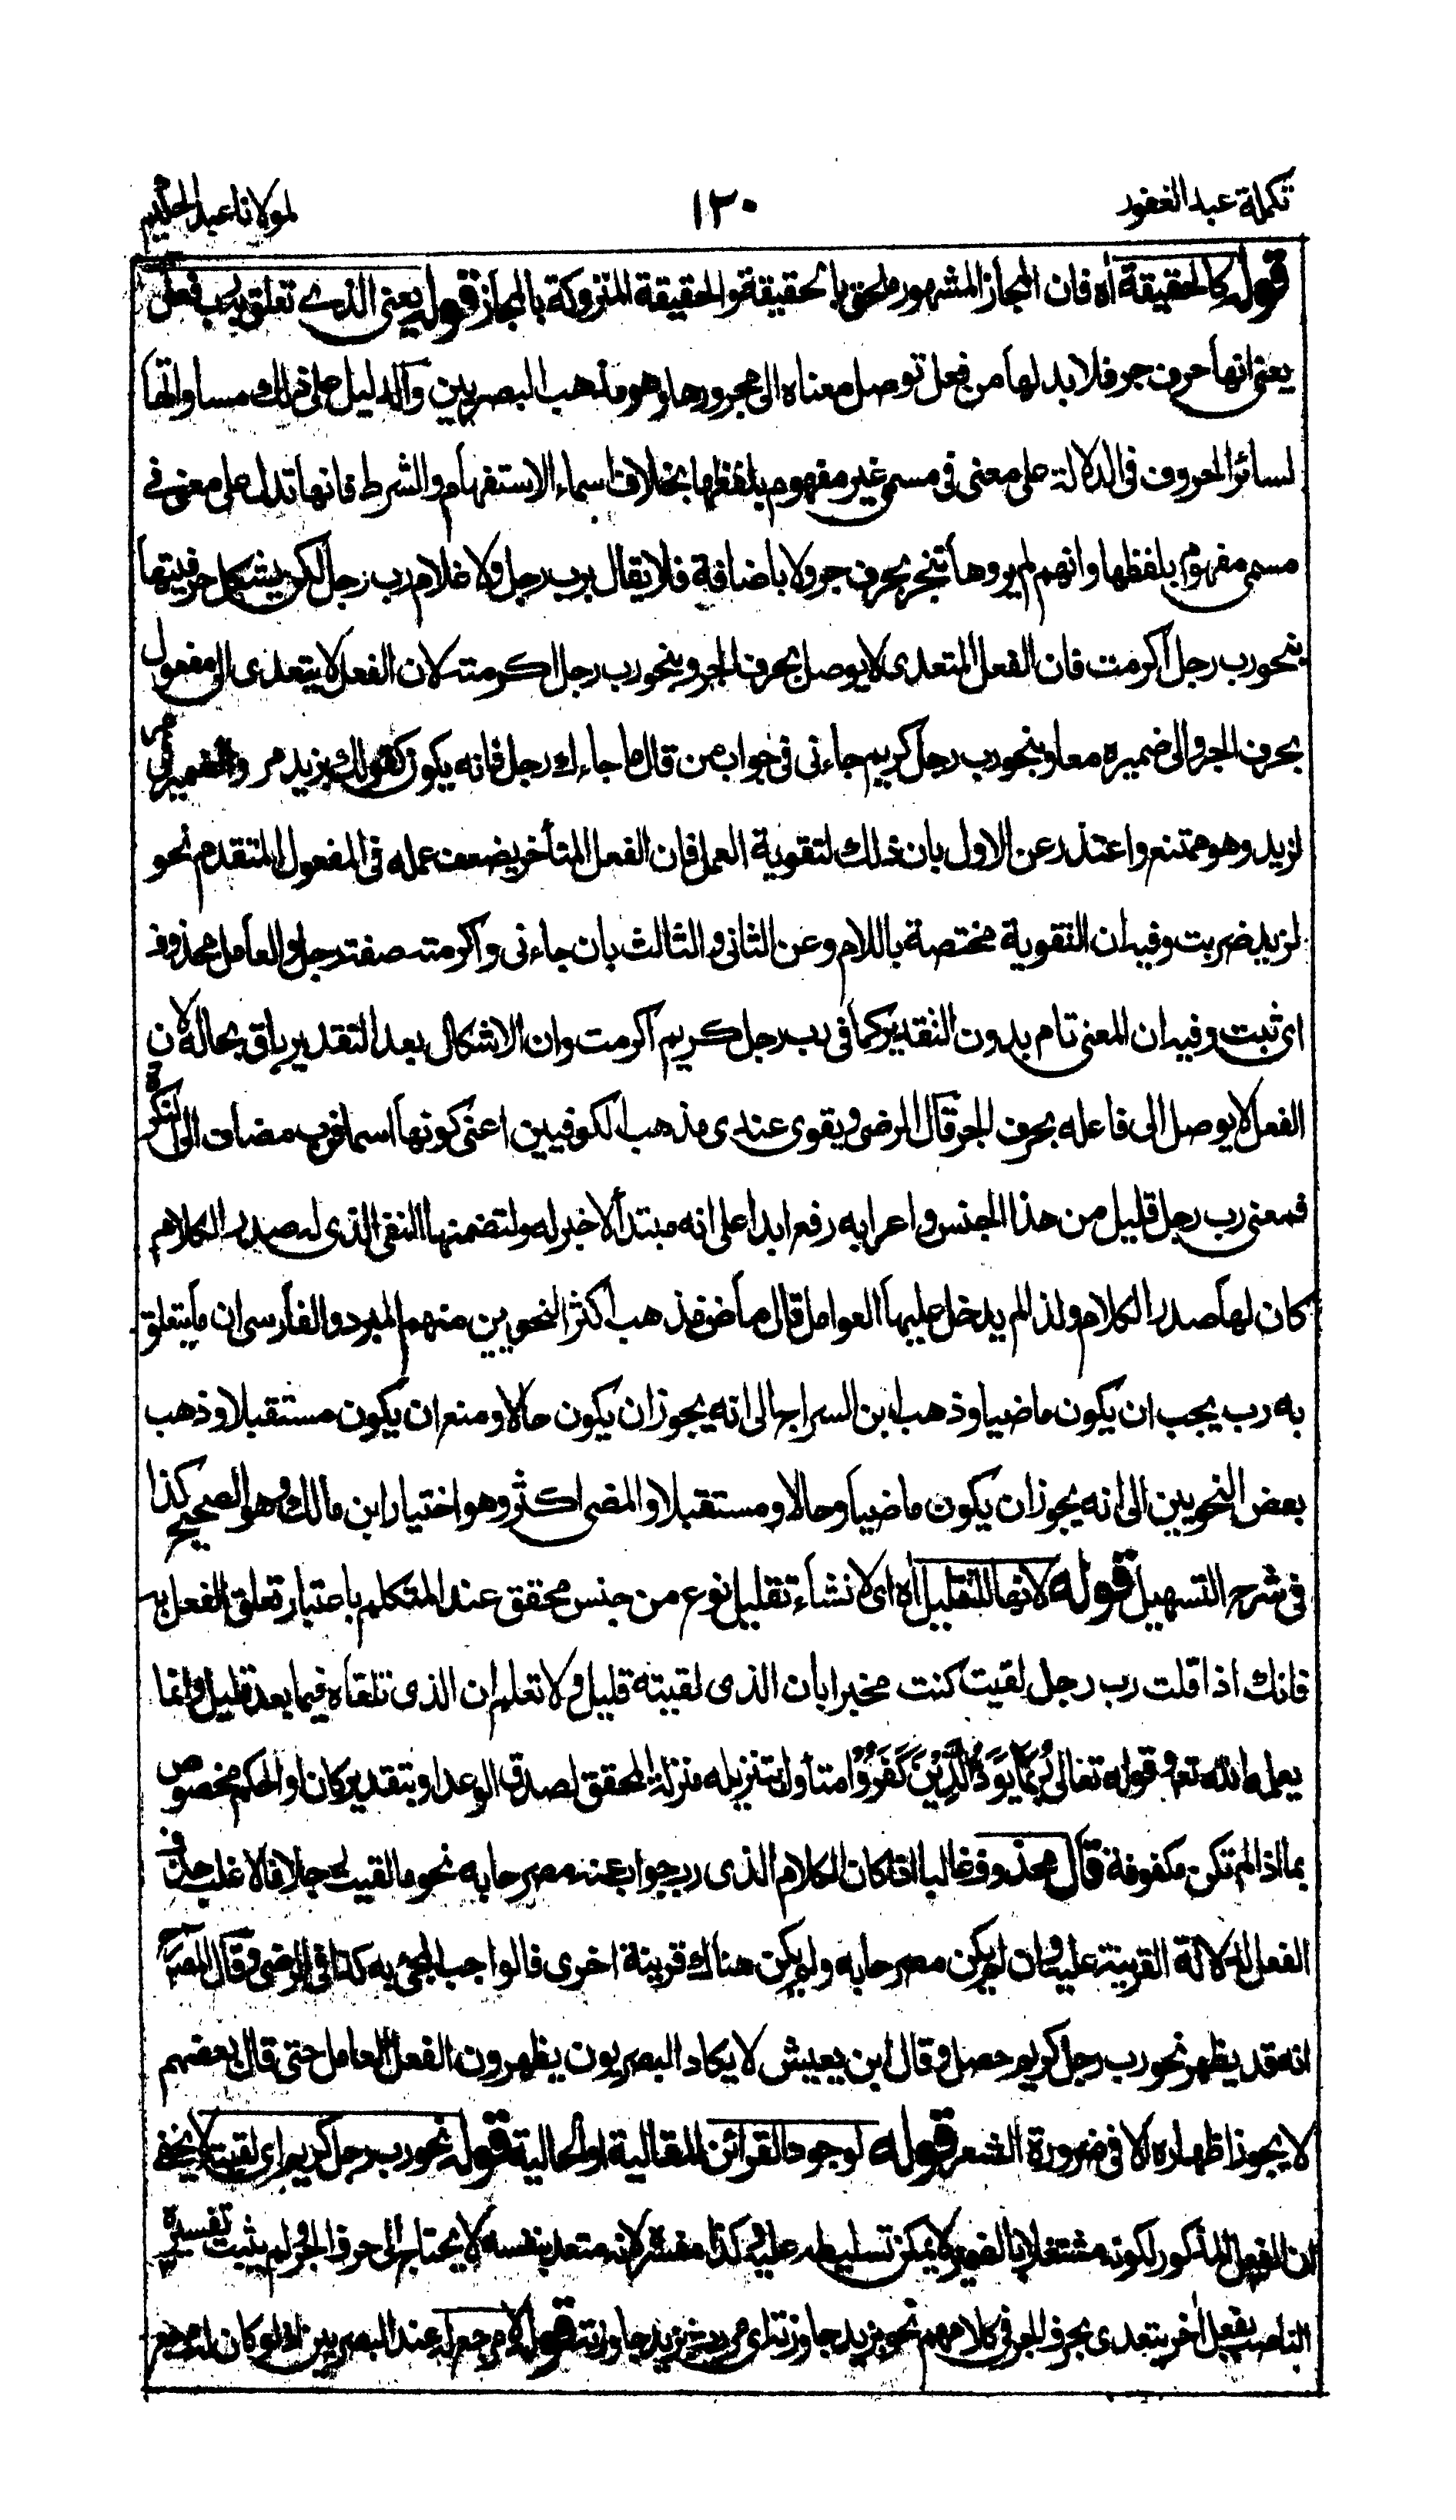 تكملة عبد الغفور
١٣٠
لمولانا عبد الحكيم
قوله كالحقيقة اه فان المجاز المشهور ملحق بالحقيقة والحقيقة المتروكة بالمجاز قوله يعنى الذى تعلق به رب فعل
يعنى انها حرف جر فلا بد لها من فعل توصل معناه الى مجرورها وهو مذهب البصريين والدليل على ذلك مساواتها
لسائر الحروف فى الدلالة على معنى فى مسمى غير مفهوم بلفظها بخلاف اسماء الاستفهام والشرط فانها تدل على معنى فى
مسمى مفهوم بلفظها وانهم لم يروها تنجر بحرف جر ولا باضافة فلا يقال برب رجل ولا غلام رب رجل لكن يشكل حرفيتها
بنحو رب رجل اكرمت فان الفعل المتعدى لا يوصل بحرف الجر وبنحو رب رجل اكرمته لان الفعل لا يتعدى الى مفعول
بحرف الجر والى ضميره معا وبنحو رب رجل كريم جاءنى فى جواب من قال ما جاءك رجل فانه يكون كقولك بزيد مر والضمير فى مر
لزيد وهو ممتنع واعتذر عن الاول بان ذلك لتقوية العمل فان الفعل المتأخر يضعف عمله فى المفعول المتقدم نحو
لزيد ضربت وفيه ان التقوية مختصة باللام وعن الثانى والثالث بان جاءنى واكرمته صفة رجل والعامل محذوف
اى ثبت وفيه ان المعنى تام بدون التقدير كما فى رب رجل كريم اكرمت وان الاشكال بعد التقدير باق بحاله لان
الفعل لا يوصل الى فاعله بحرف الجر قال الرضى ويقوى عندى مذهب الكوفيين اعنى كونها اسما فرب مضاف الى النكرة
فمعنى رب رجل قليل من هذا الجنس واعرابه رفع ابدا على انه مبتدأ لا خبر له ولتضمنها النفى الذى له صدر الكلام
كان لها صدر الكلام ولذا لم يدخل عليها العوامل قال ماض فذهب اكثر النحويين منهم المبرد والفارسى ان ما يتعلق
به رب يجب ان يكون ماضيا وذهب ابن السراج الى انه يجوز ان يكون حالا ومنع ان يكون مستقبلا وذهب
بعض النحويين الى انه يجوز ان يكون ماضيا وحالا ومستقبلا والمضى اكثر وهو اختيار ابن مالك وهو الصحيح كذا
فى شرح التسهيل قوله لانها للتقليل اه اى لانشاء تقليل نوع من جنس محقق عند المتكلم باعتبار تعلق الفعل به
فانك اذا قلت رب رجل لقيت كنت مخبرا بان الذى لقيته قليل ولا تعلم ان الذى تلقاه فيما بعد قليل وانما
يعلمه الله تعه وقوله تعالى رُبَمَا يَوَدُّ الَّذِيْنَ كَفَرُوْا متأول بتنزيله منزلة المحقق لصدق الوعد او بتقدير كان او الحكم مخصوص
بما اذا لم تكن مكفوفة قال محذوف غالبا اذا كان الكلام الذى رب جواب عنه مصرحا به نحو ما لقيت رجلا فالاغلب حذف
الفعل لدلالة القرينة عليه وان لم يكن مصرحا به ولم يكن هناك قرينة اخرى فالواجب المجئ به كذا فى الرضى وقال المصـ
انه قد يظهر نحو رب رجل كريم حصل وقال ابن يعيش لا يكاد البصريون يظهرون الفعل العامل حتى قال بعضهم
لا يجوز اظهاره الا فى ضرورة الشعر قوله لوجود القرائن المقالية او الحالية قوله نحو رب رجل كريم اى لقيته لا يخفى
ان الفعل المذكور لكونه مشتغلا بالضمير لا يمكن تسليطه عليه وكذا مفسره لانه متعد بنفسه لا يحتاج الى حرف الجر ولم يثبت تفسيره
الناصب بفعل اخر يتعدى بحرف الجر فى كلامهم نحو بزيد جاوزته اى مررت بزيد جاوزته قوله لا مرجع له عند البصريين اذ لو كان له مرجع